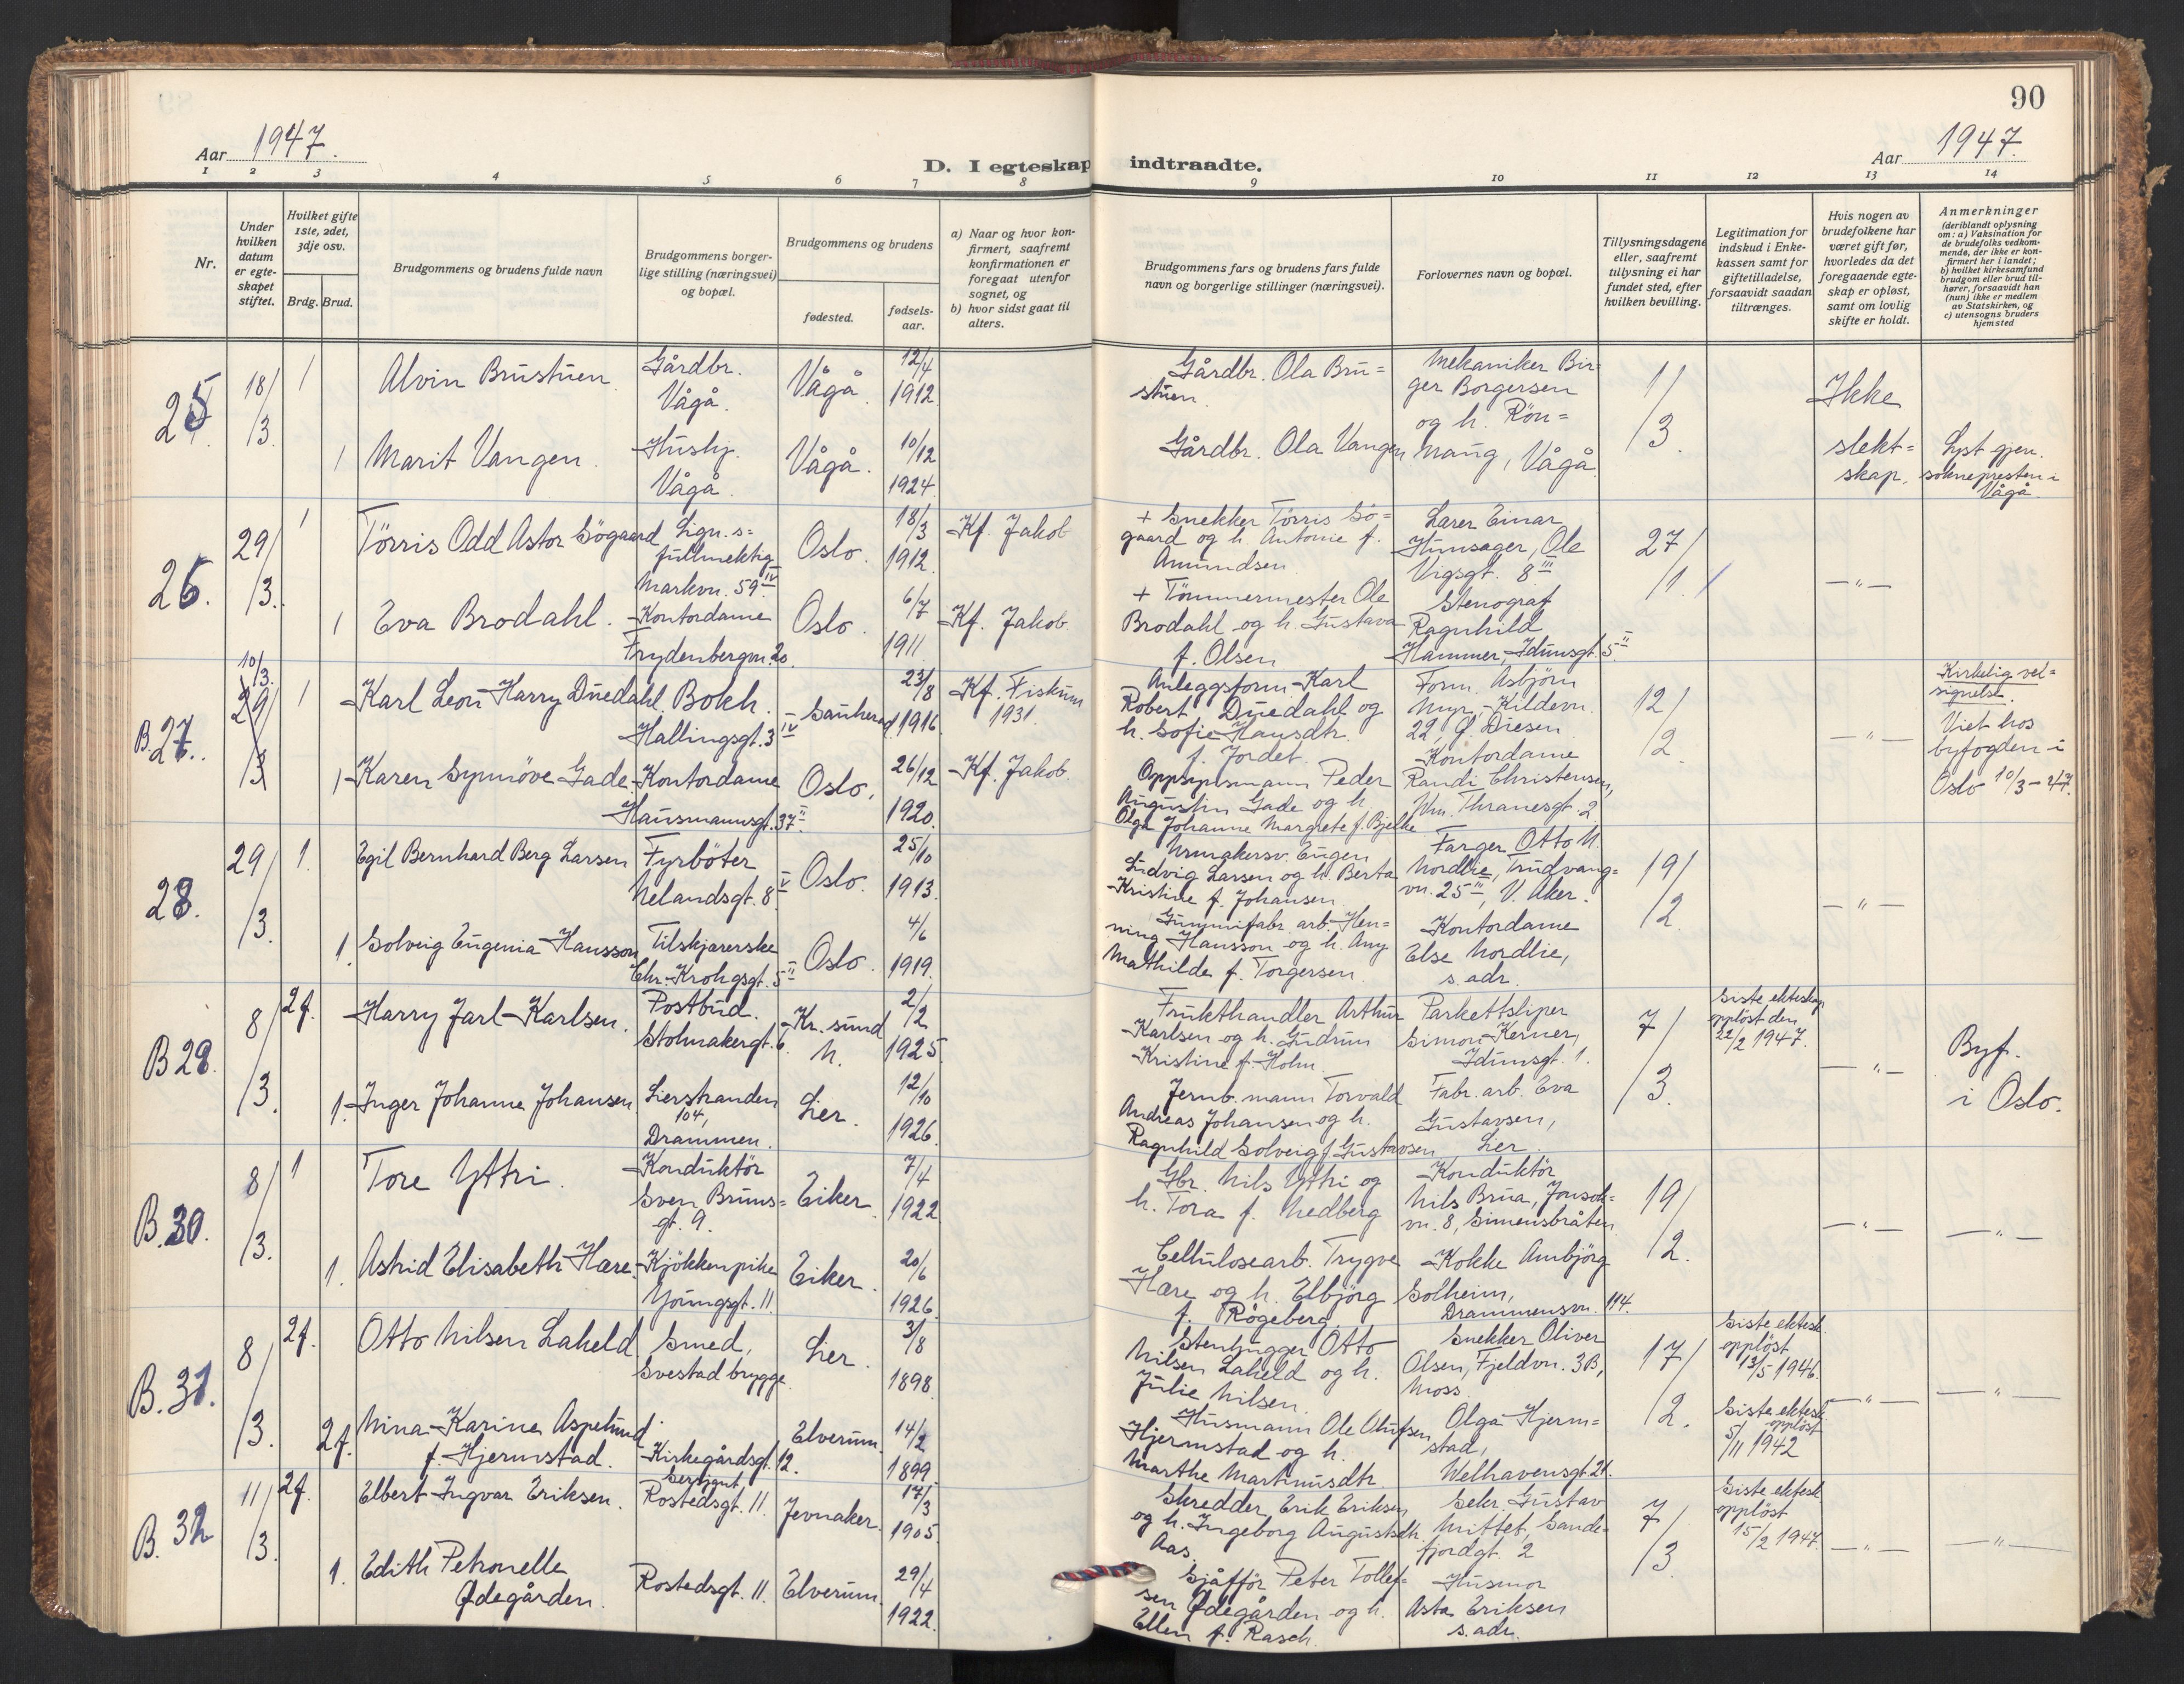 90
Aar 1947.
D. I egteskap indtraadte.
Aar 1947.
1 2 3 4 5 6 7 8 9 10 11 12 13 14
Nr.
Under hvilken datum er egteskapet stiftet.
Hvilket gifte 1ste, 2det, 3dje osv.
Brdg. Brud.
Brudgommens og brudens fulde navn
Brudgommens borgerlige stilling (næringsvei) og bopæl.
Brudgommens og brudens
fødested.
fødselsaar.
a) Naar og hvor konfirmert, saafremt konfirmationen er foregaat utenfor sognet, og
b) hvor sidst gaat til alters.
Brudgommens fars og brudens fars fulde navn og borgerlige stillinger (næringsvei).
Forlovernes navn og bopæl.
Tillysningsdagene eller, saafremt tillysning ei har fundet sted, efter hvilken bevilling.
Legitimation for indskud i Enkekassen samt for giftetilladelse, forsaavidt saadan tiltrænges.
Hvis nogen av brudefolkene har været gift før, hvorledes da det foregaaende egteskap er opløst, samt om lovlig skifte er holdt.
Anmerkninger (deriblandt oplysning om: a) Vaksination for de brudefolks vedkommende, der ikke er konfirmert her i landet; b) hvilket kirkesamfund brudgom eller brud tilhører, forsaavidt han (hun) ikke er medlem av Statskirken, og c) utensogns bruders hjemsted
25. 18/3. 1 Alvin Brustuen. Gårdbr. Vågå. Vågå. 12/4 1912.
Gårdbr. Ola Brustuen. Mekaniker Birger Borgersen og h. Rönnaug, Vågå 1/3. Ikke slektskap.
1 Marit Vangen. Hushj. Vågå. Vågå. 10/12 1924.
Gårdbr. Ola Vangen Lyst gjen. soknepresten i Vågå
26. 29/3. 1 Törris Odd Astor Sögaard Lign.s=fullmektig Markvn. 59 IV Oslo. 18/3 1912. Kf. Jakob
+ Snekker Törris Sögaard og h. Antonie f. Amundsen. Lærer Einar Hunsager, Ole Vigsgt. 8 III 27/1. — " —
1 Eva Brodahl. Kontordame Frydenbergvn. 20. Oslo. 6/7 1911 Kf. Jakob.
+ Tömmermester Ole Brodahl og h. Gustava f. Olsen Stenograf Ragnhild Hammer, Idunsgt. 5 II
B. 27. 10/3. 29/3 1 Karl Leon Harry Duedahl. Bokh. Hallingsgt. 3 IV Sauherad 23/8 1916. Kf. Fiskum 1931.
Anleggsform. Karl Robert Duedahl og h. Sofie Hansdtr. f. Jordet. Form. Asbjörn Myr, Kildevn. 22, Ø. Diesen 12/2. — " — Kirkelig velsignelse. Viet hos byfogden i Oslo 10/3-47.
1 Karen Synnöve Gade. Kontordame Hausmannsgt. 37 II Oslo. 26/12 1920. Kf. Jakob.
Oppsynsmann Peder Augustin Gade og h. Olga Johanne Margrete f. Bjelke Kontordame Randi Christensen, Thranesgt. 2
28. 29/3. 1. Egil Bernhard Berg Larsen Fyrböter Helandsgt. 8 V Oslo. 25/10 1913.
Urmakersv. Eugen Ludvig Larsen og h. Berta Kristine f. Johansen Farger Otto M. Nordlie, Trudvangvn. 25 III, V. Aker. 19/2. — " —
1. Solveig Eugenia Hansson Tilskjærerske Chr. Krohgsgt. 5 II Oslo. 4/6 1919.
Gummifabr. arb. Henning Hansson og h. Any Mathilde f. Torgersen Kontordame Else Nordlie, s. adr.
B 29. 8/3. 2 f. Harry Jarl Karlsen. Postbud. Stolmakergt. 6. Kr. sund N. 2/2 1925
Frukthandler Arthur Karlsen og h. Gudrun Kristine f. Holm. Parkettsliper Simon Kerner, Idunsgt. 1. 7/3. Siste ekteskap opplöst den 22/2 1947. — " — Byf. i Oslo.
1. Inger Johanne Johansen Lierstranden 104, Drammen. Lier. 12/10 1926.
Jernb. mann Torvald Andreas Johansen og h. Ragnhild Solveig f. Gustavsen Fabr. arb. Eva Gustavsen, Lier.
B. 30. 8/3. 1 Tore Yttri. Konduktör Sven Brunsgt. 9. Eiker 7/4 1922
Gbr. Nils Yttri og h. Tora f. Nedberg Konduktör Nils Brua, Jonsokvn. 8, Simensbråten 19/2. — " — — " —
1. Astrid Elisabeth Hære. Kjökkenpike Youngsgt. 11. Eiker. 20/6 1926.
Cellulosearb. Trygve Hære og h. Elbjörg f. Rögeberg. Kokke Ambjörg Solheim, Drammensvn. 114.
B. 31. 8/3. 2 f. Otto Nilsen Laheld. Smed, Svestad brygge. Lier. 3/8 1898.
Stenhugger Otto Nilsen Laheld og h. Julie Nilsen. Snekker Oliver Olsen, Fjeldvn. 3B, Moss. 17/2. Siste ektesk. opplöst 13/5 1946. — " — — " —
2 f. Nina Karine Aspelund f. Hjermstad. Kirkegårdsgt. 12. Elverum. 14/2 1899.
Husmann Ole Olufsen Hjermstad og h. Marthe Martinusdtr. Olga Hjermstad, Welhavensgt. 21. Siste ektesk. opplöst 5/11 1942
B. 32 11/3. 2 f. Elbert Ingvar Eriksen. Sersjant Rostedsgt. 11. Jevnaker. 17/3 1905
Skredder Erik Eriksen og h. Ingeborg Augustsdtr. Aas. Sekr. Gustav Mittet, Sandefjordgt. 2 7/3. Siste ektesk. opplöst 15/2 1947. — " — — " —
1. Edith Petronelle Ødegården. Rostedsgt. 11. Elverum. 29/4 1922.
Sjåfför Peter Tollefsen Ødegården og h. Ellen f. Rasch. Husmor Asta Eriksen s. adr.